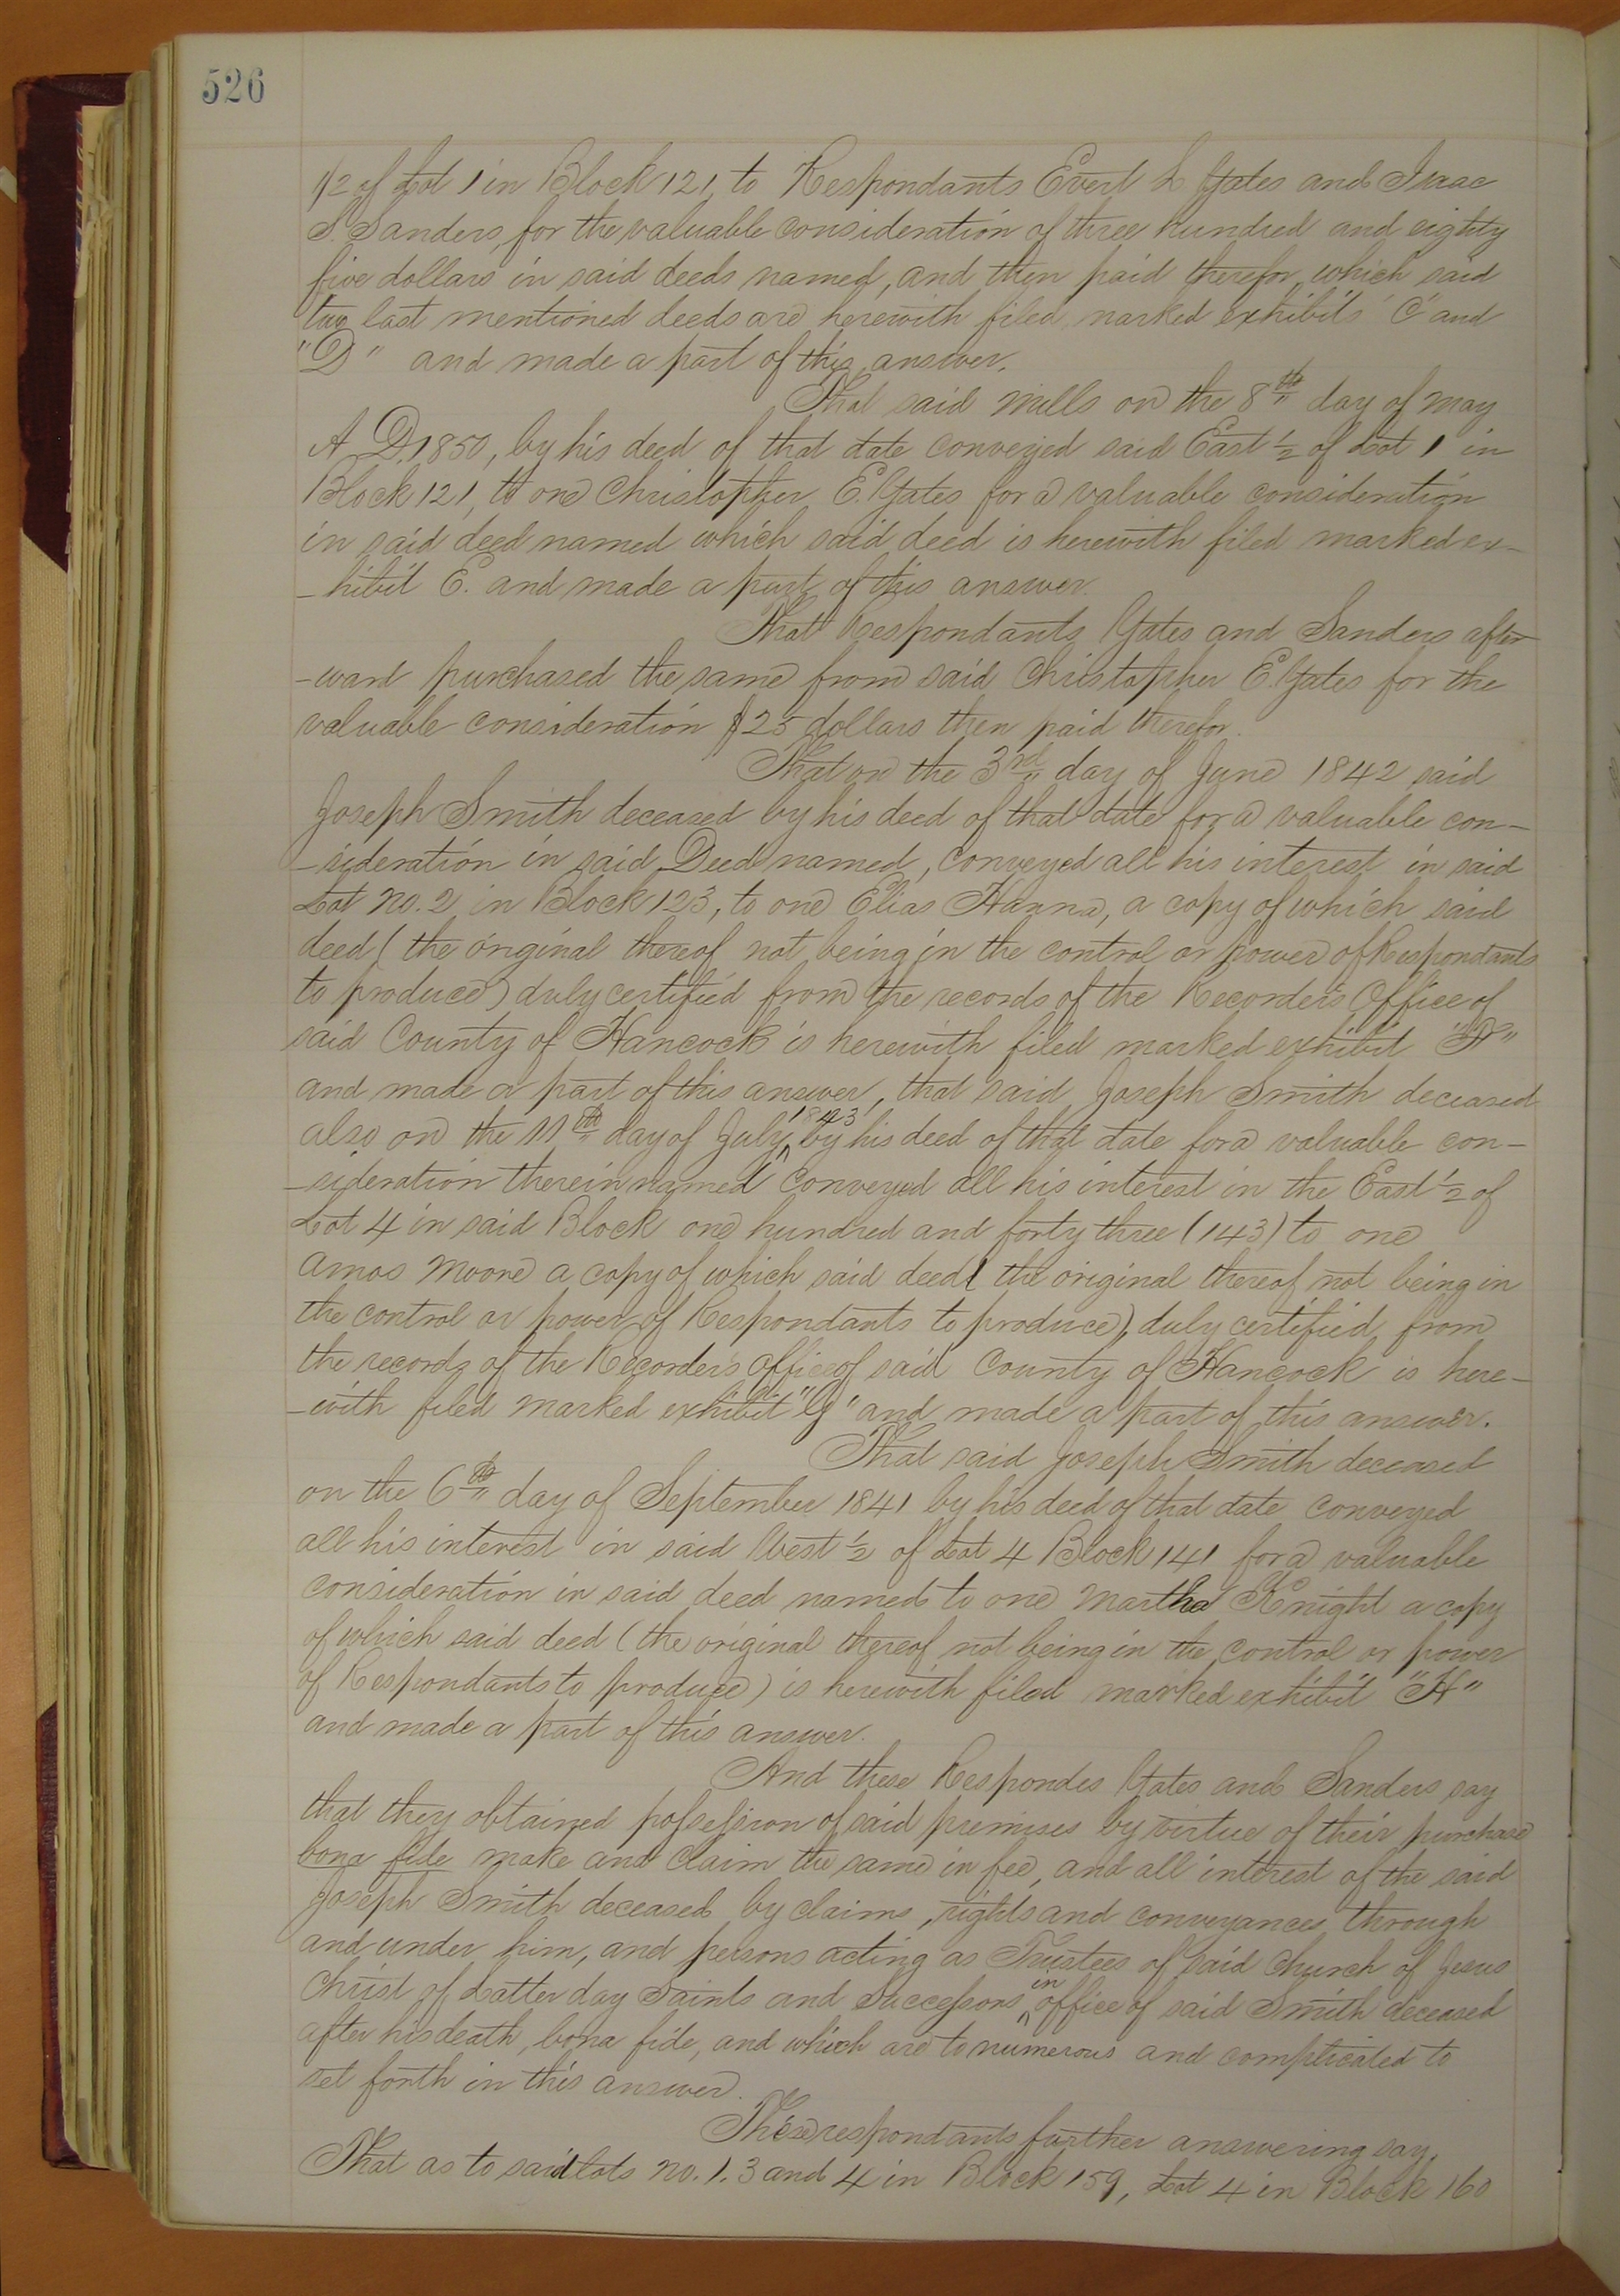 526
1/2 of Lot 1 in Block 121, to Respondants Evert L Yates and Isaac
S. Sanders, for the valuable consideration of three hundred and eighty
five dollars in said deeds named, and then paid therefor, which said
two last mentioned deeds are herewith filed, marked exhibits "C" and
"D" and made a part of this answer.
That said Mills on the 8th day of May
A. D. 1850, by his deed of that date conveyed said East 1/2 of Lot 1 in
Block 121, to one Christopher E. Yates for a valuable consideration
in said deed named which said deed is herewith filed marked ex-
-hibit E. and made a part of this answer.
That Respondants Yates and Sanders after-
-ward purchased the same from said Christopher E. Yates for the
valuable consideration $25 dollars then paid therefor.
That on the 3rd day of June 1842 said
Joseph Smith deceased by his deed of that date for a valuable con-
-sideration in said Deed named, conveyed all his interest in said
Lot No. 2 in Block 123, to one Elias Hanna, a copy of which said
deed (the original thereof not being in the control or power of Respondants
to produce) duly certified from the records of the Recorder's Office of
said County of Hancock is herewith filed marked exhibit "F"
and made a part of this answer, that said Joseph Smith deceased
also on the 11th day of July, 1843, by his deed of that date for a valuable con-
-sideration therein named conveyed all his interest in the East 1/2 of
Lot 4 in said Block one hundred and forty three (143) to one
Amos Moore a copy of which said deed (the original thereof not being in
the control or power of Respondants to produce), duly certified from
the records of the Recorder's Office of said County of Hancock is here-
-with filed marked exhibit "G" and made a part of this answer.
That said Joseph Smith deceased
on the 6th day of September 1841 by his deed of that date conveyed
all his interest in said West 1/2 of Lot 4 Block 141 for a valuable
consideration in said deed named to one Martha Knight a copy
of which said deed (the original thereof not being in the control or power
of Respondants to produce) is herewith filed marked exhibit "H"
and made a part of this answer.
And these Respondes Yates and Sanders say
that they obtained possession of said premises by virtue of their purchase
bona fide make and claim the same in fee, and all interest of the said
Joseph Smith deceased by claims, rights and conveyances through
and under him, and persons acting as Trustees of said Church of Jesus
Christ of Latter day Saints and Successors in office of said Smith deceased
after his death, bona fide, and which are to numerous and complicated to
set forth in this answer.
These respondants further answering say,
That as to said lots No. 1. 3 and 4 in Block 159, Lot 4 in Block 160